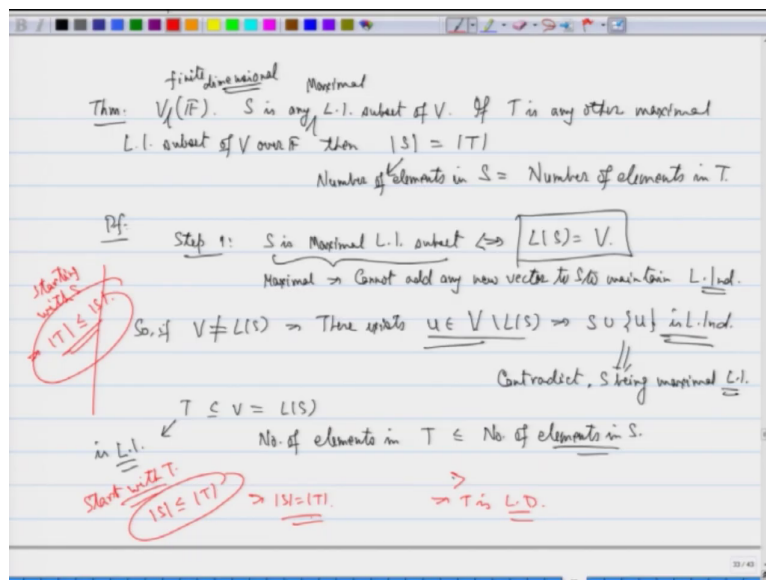 finite dimensional Maximal
Thm. V(𝔽). S is any L.I. subset of V. If T is any other maximal
L.I. subset of V over 𝔽 then |S| = |T|
Number of elements in S = Number of elements in T.
Pf:
Step 1: S is Maximal L.I. subset ⇔ L(S) = V.
Maximal ⇒ Cannot add any new vector to S to maintain L.Ind.
Starting
with S
⇒ |T| ≤ |S|.
So, if V ≠ L(S) ⇒ There exists u ∈ V \ L(S) ⇒ S ∪ {u} is L.Ind.
Contradict, S being maximal L.I.
T ⊆ V = L(S)
is L.I.
No. of elements in T ≤ No. of elements in S.
Start with T.
|S| ≤ |T| ⇒ |S| = |T|.
⇒ T is L.D.
33 / 43